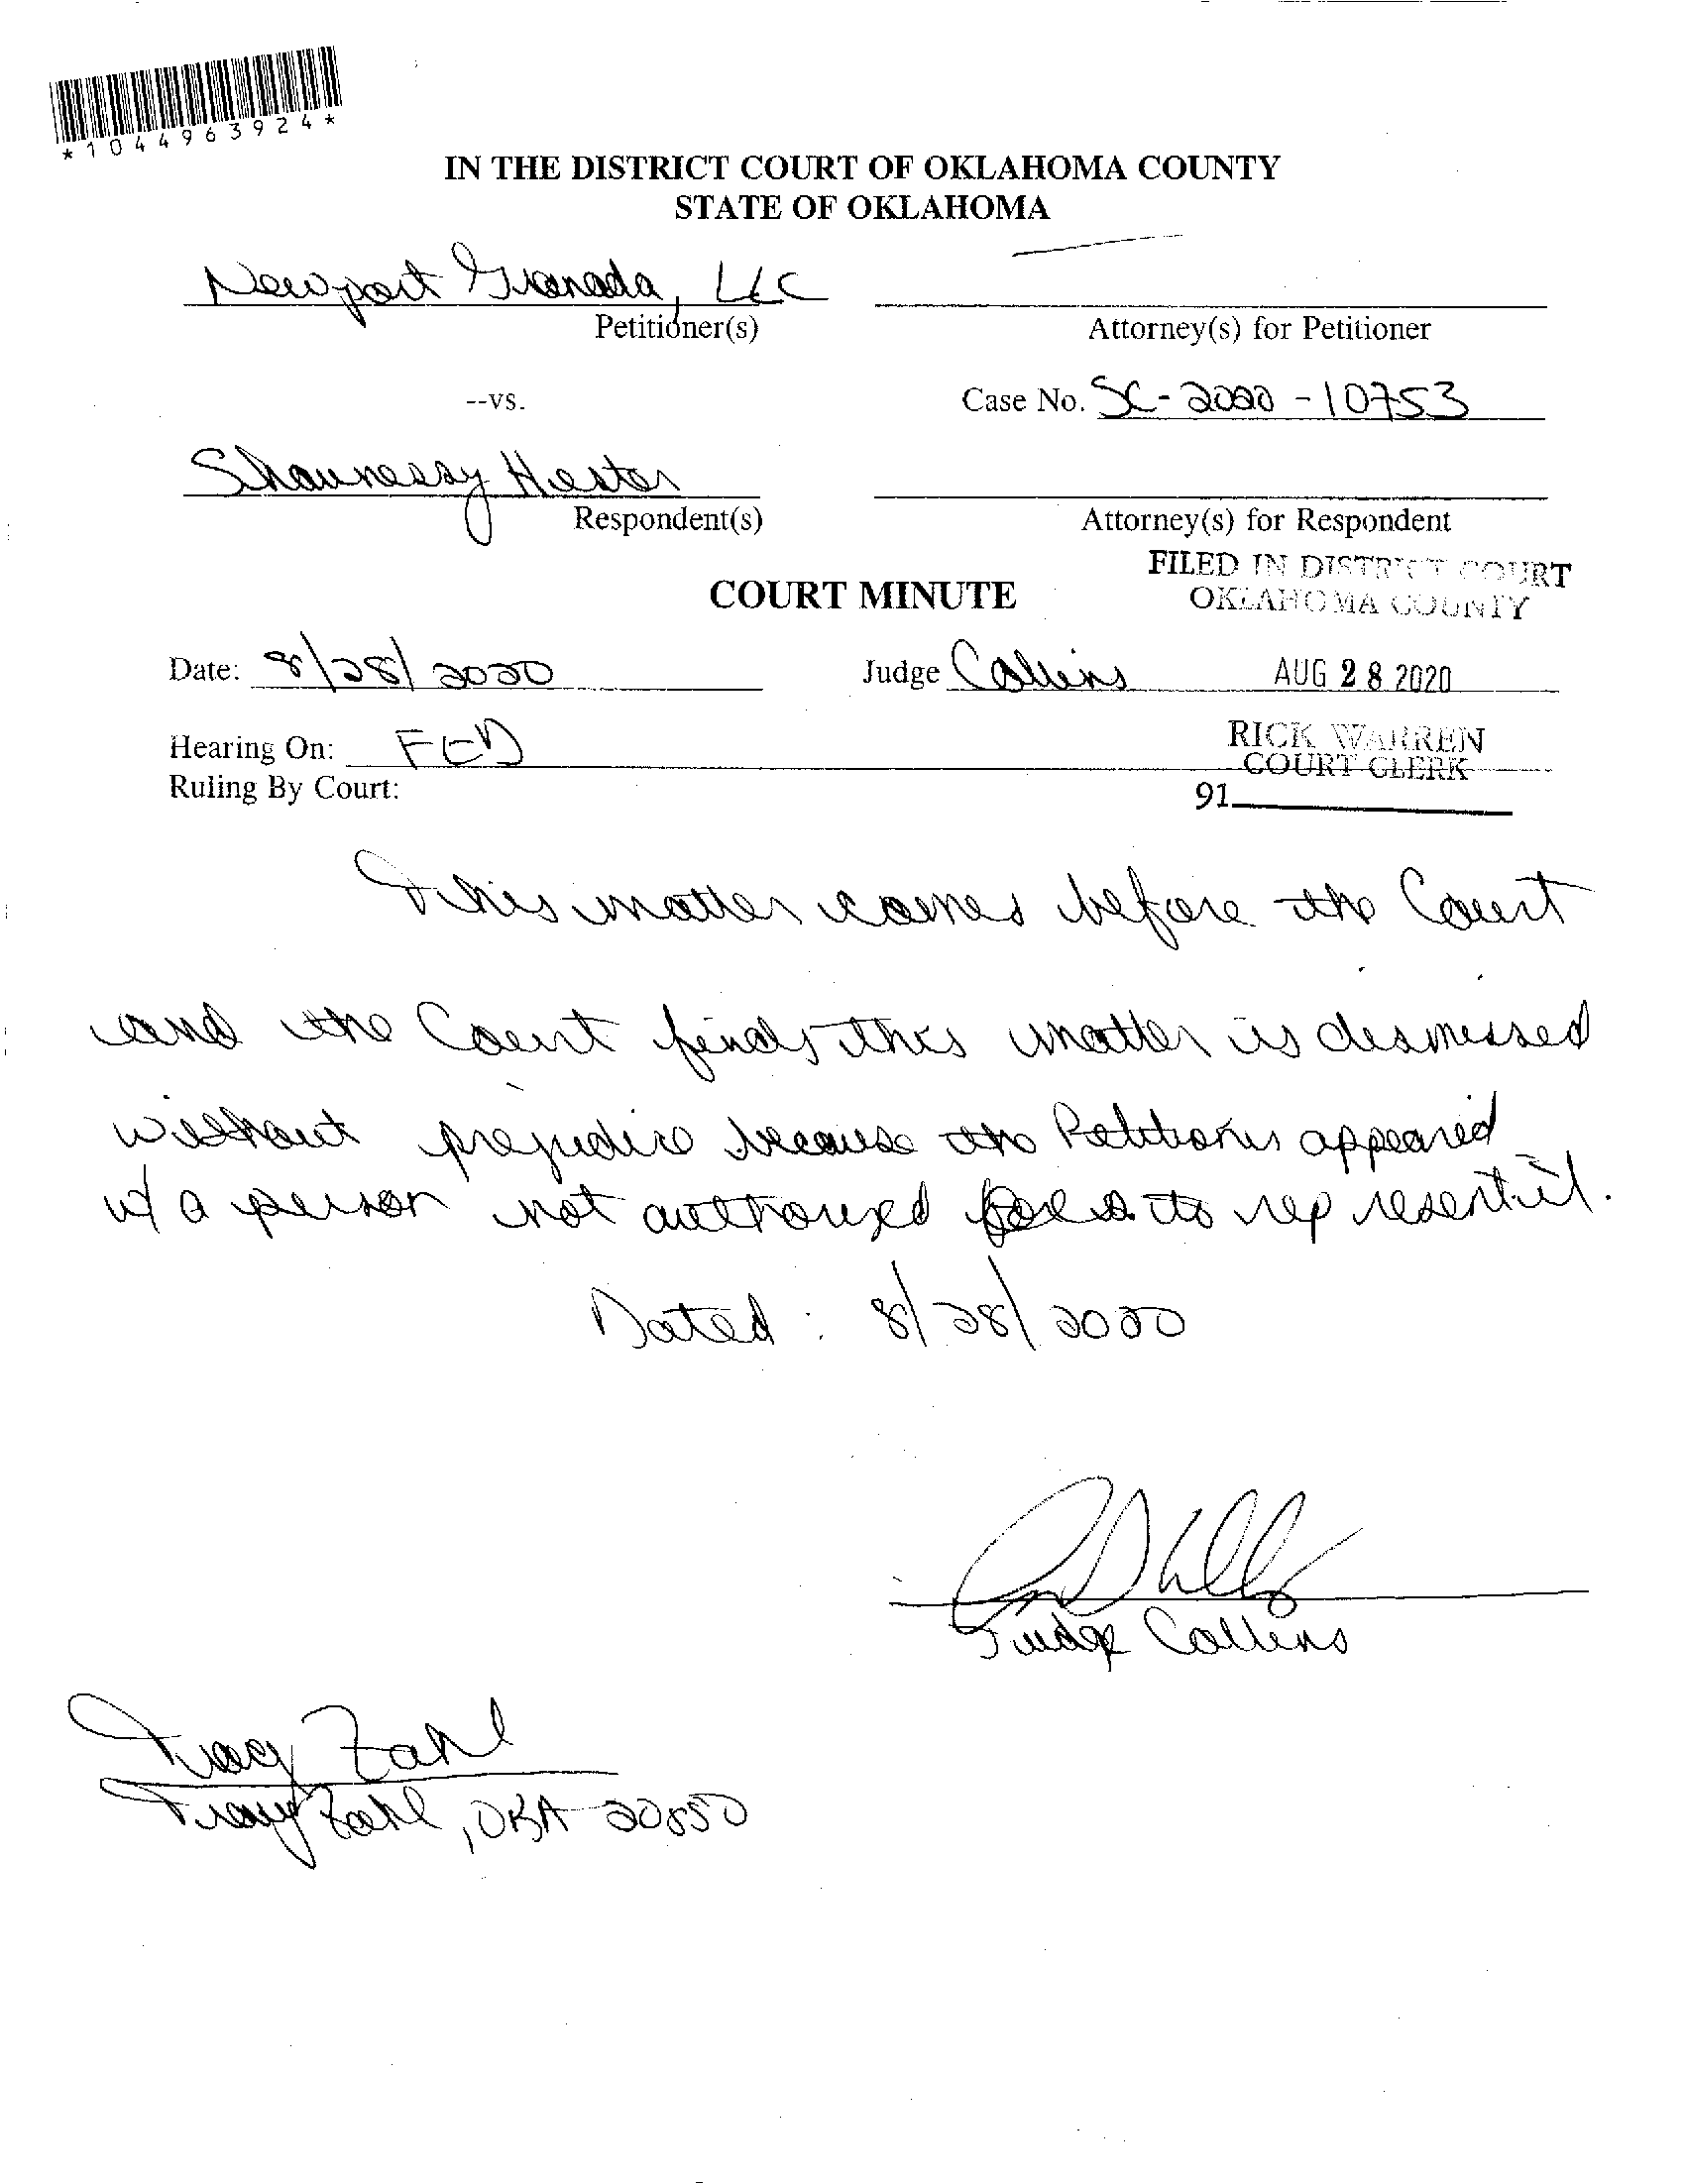 *1044963924*
IN THE DISTRICT COURT OF OKLAHOMA COUNTY
STATE OF OKLAHOMA
Newport Granada, LLC
Petitioner(s)
Attorney(s) for Petitioner
--vs.
Case No. SC-2020-10753
Shaunessy Hester
Respondent(s)
Attorney(s) for Respondent
FILED IN DISTRICT COURT
OKLAHOMA COUNTY
COURT MINUTE
Date: 8/28/2020
Judge Collins
AUG 28 2020
Hearing On: FED
RICK WARREN
COURT CLERK
Ruling By Court:
91
This matter comes before the Court
and the Court finds this matter is dismissed
without prejudice because the Petitioner appeared
w/ a person not authorized to represent it.
Dated: 8/28/2020
Judge Collins
Tracy Zahl
Tracy Zahl, OBA 20850